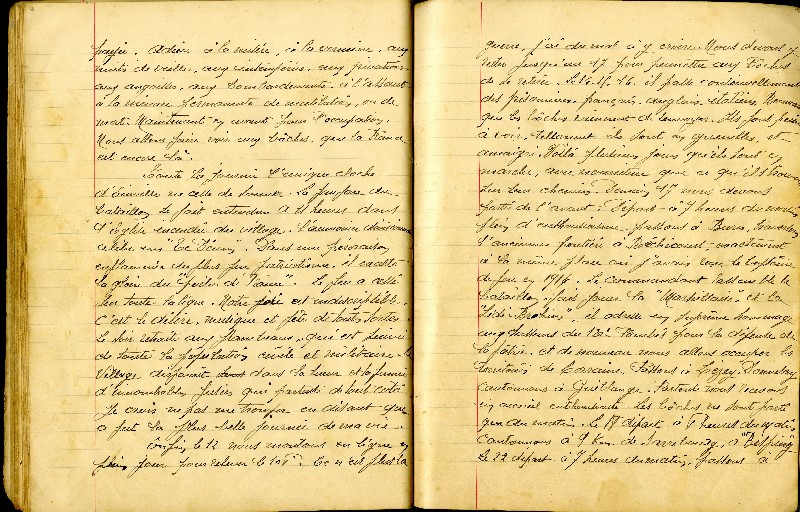 foyer. Adieu à la misère, à la vermine, aux
nuits de veille, aux intempéries, aux privations
aux angoisses, aux bombardements, à l'assaut
à la menace permanente de mutilation, ou de
mort. Maintenant en avant pour l'occupation.
Nous allons faire voir aux bôches que la France
est encore là.
Toute la journée l'unique cloche
d'Einville ne cesse de sonner. La fanfare du
bataillon se fait entendre. A 11 heures dans
l'Eglise bondée du village. L'aumonier divisionnaire
célèbre un "Te Deum". Dans une
enflammée des plus pur patriotisme, il exalte
la gloire des "Poilus de France". Le feu a cessé
sur toute la ligne. Notre joie est indescriptible.
C'est le délire, musique et fête de toutes sortes.
Le soir retraite aux flambeaux, qui est suivie
de toute la population civile et militaire. Le
Village disparait dans la lueur et la fumée
d'innombrables fusées qui partent de tout côté
Je crois ne pas me tromper en disant que
ce fut la plus belle journée de ma vie.
Enfin, le 12 nous montons en ligne en
plein jour pour relever le Ce n'est plus la
guerre, j'ai du mal à y croire. Nous devons y
rester jusqu'au 17 pour permettre aux Bôches
de se retirer. Le 15 et 16, il passe continuellement
des prisonniers français, anglais, italiens, Roumains
que les bôches viennent de renvoyer. Ils font peine
à voir, tellement ils sont en guenilles, et
amaigri. Voilà plusieurs jours qu'ils sont en
marche, sans nourriture que ce qu'ils trouvent
sur leur chemin. Demain 17 nous devons
partir de l'avant. Départ à 7 heures du matin
plein d'enthousiasme, passons à Bures, franchissons
l'ancienne frontière à exactement
à la même place où j'avais reçu le baptême
du feu en 1914. Le commandant rassemble le
bataillon, fait jouer la "Marseillaise" et la
"Sidi-Brahim" et adresse un suprême hommage
aux chasseurs du tombés pour la défense de
la patrie. et de nouveau nous allons occuper le
territoire de Lorraine. Passons à Lezey,
cantonnons à Guéblange. Partout nous recevons
un accueil enthousiaste. Les bôches ne sont partis
que du matin. Le départ à 7 heures du matin,
Cantonnons à 9 Km. de Sarrebourg, à "Bisping"
Le 22 départ à 7 heures du matin, passons à